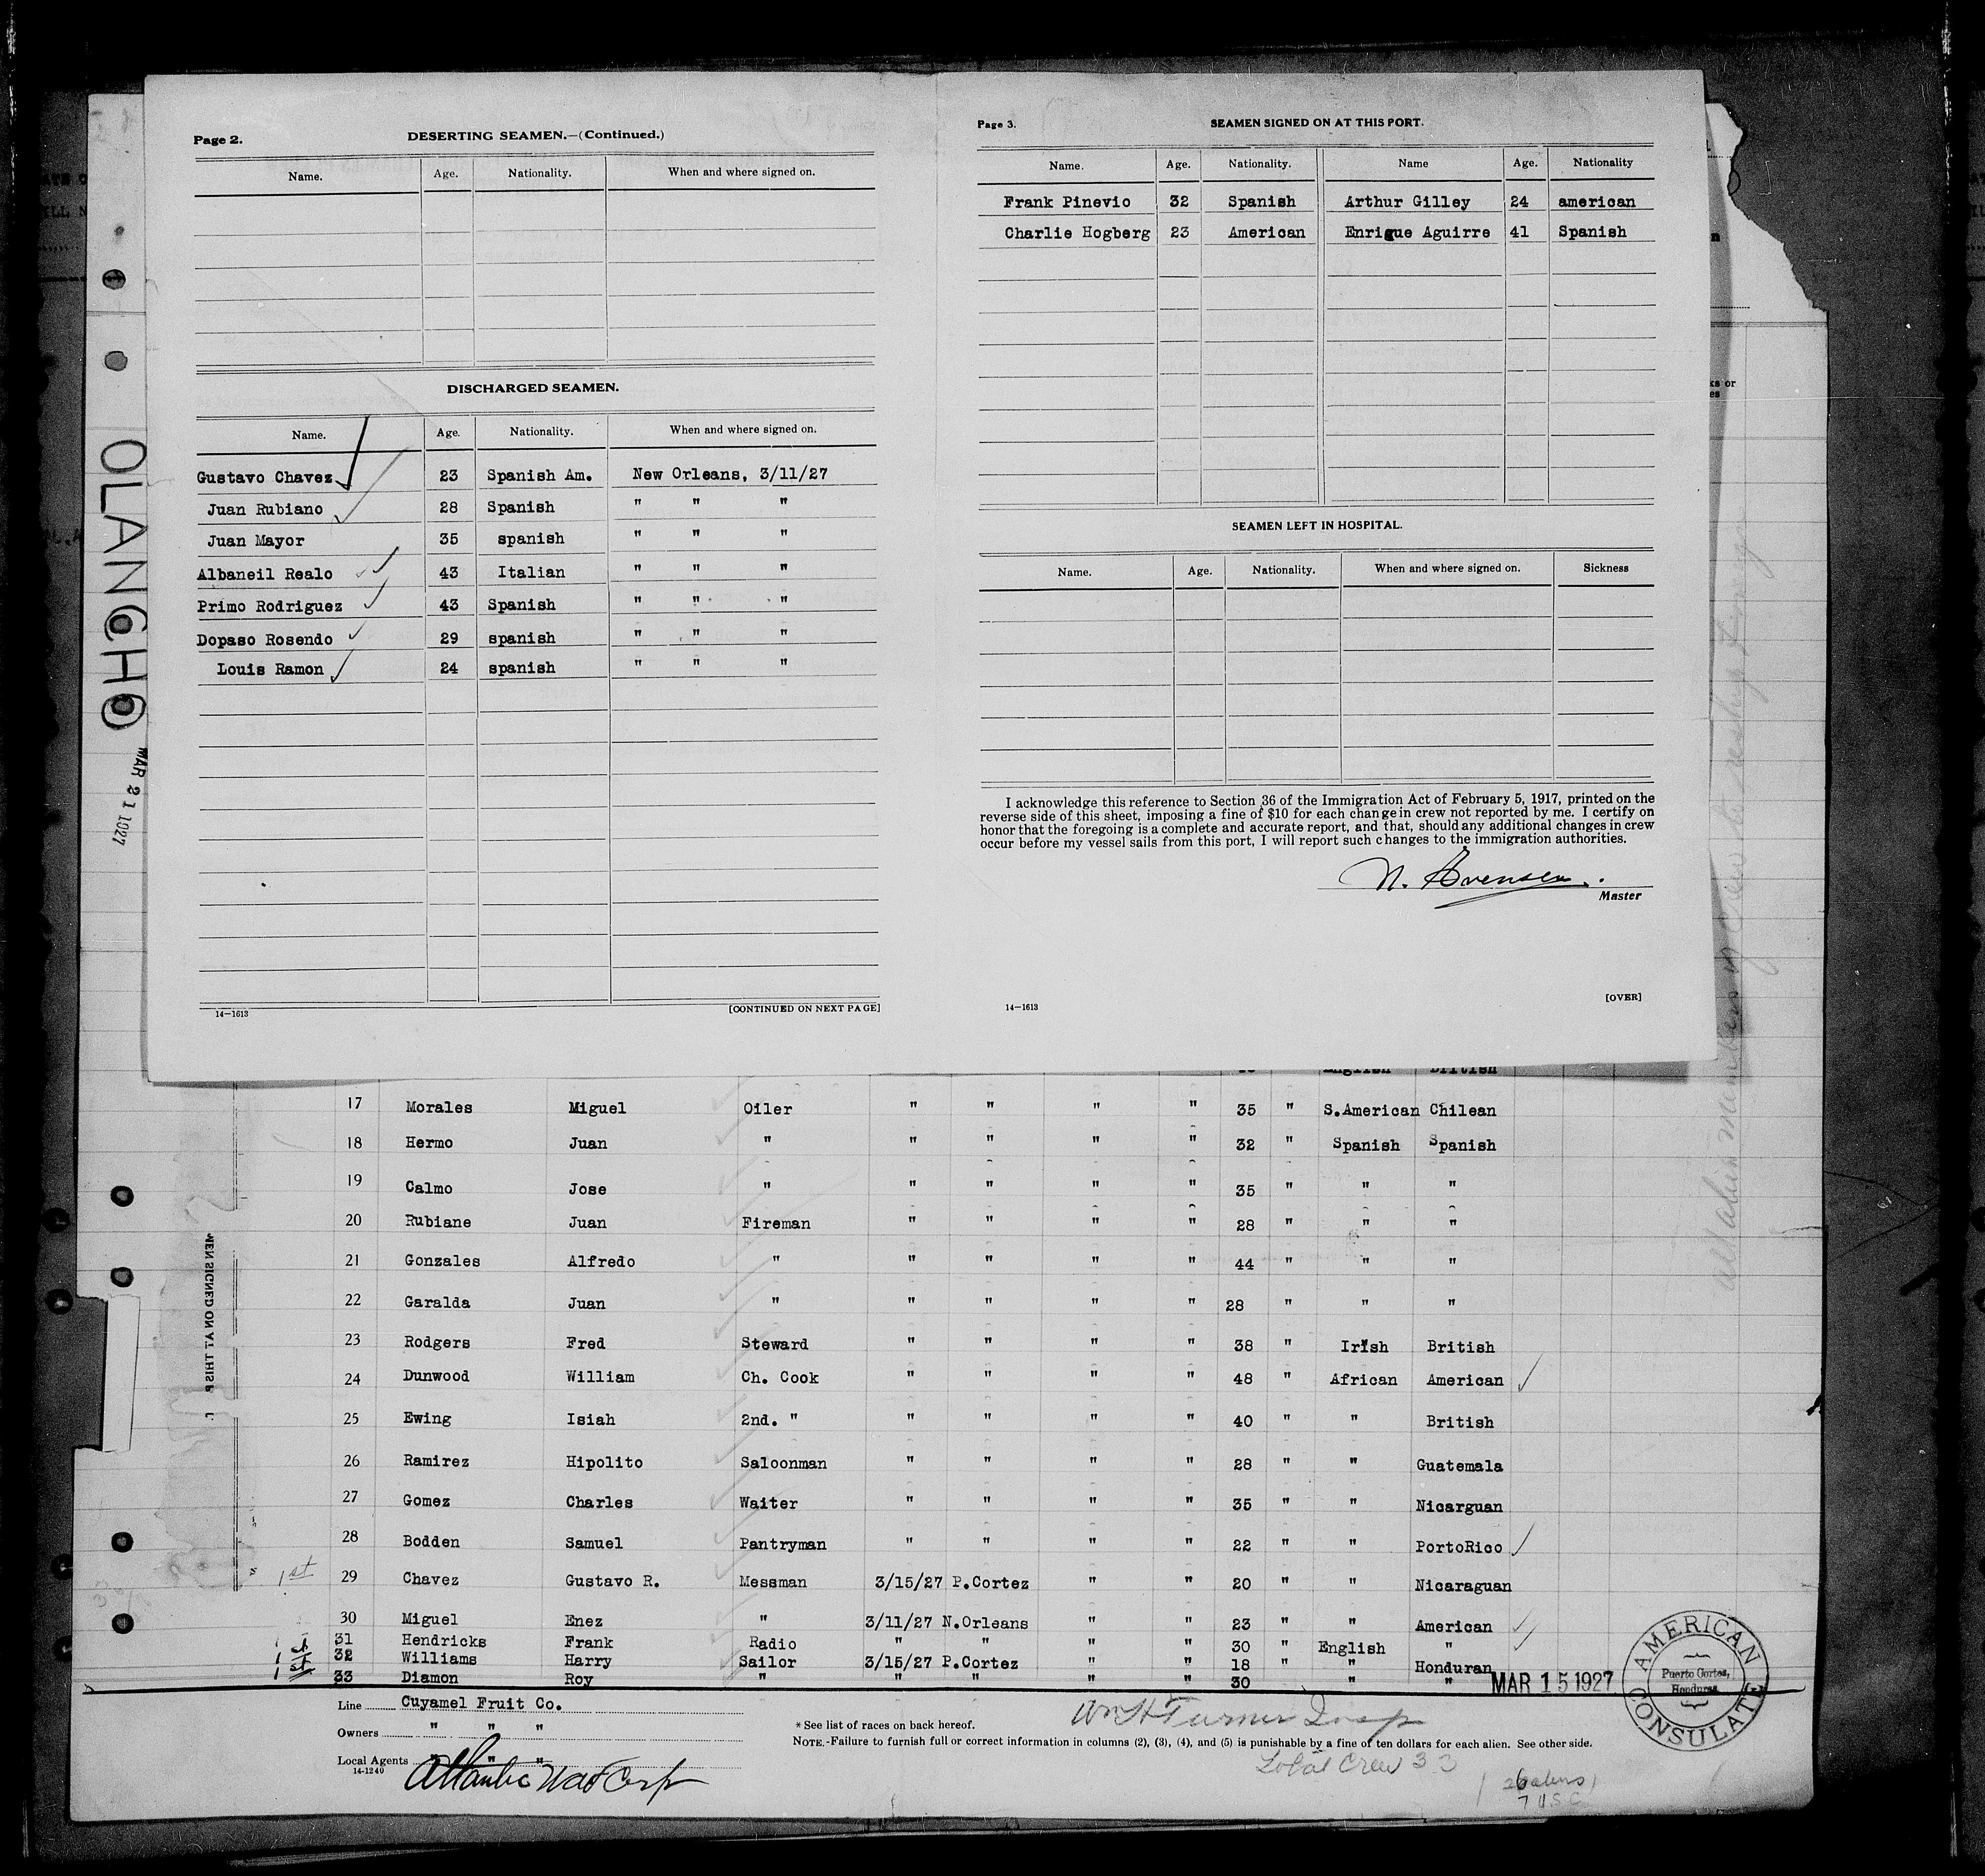 OLANCHO
MAR 21 1927
Page 2.
DESERTING SEAMEN.—(Continued.)
Name. Age. Nationality. When and where signed on.
DISCHARGED SEAMEN.
Name. Age. Nationality. When and where signed on.
Gustavo Chavez 23 Spanish Am. New Orleans, 3/11/27
Juan Rubiano 28 Spanish " " "
Juan Mayor 35 spanish " " "
Albaneil Realo 43 Italian " " "
Primo Rodriguez 43 Spanish " " "
Dopaso Rosendo 29 spanish " " "
Louis Ramon 24 spanish " " "
14—1613 [CONTINUED ON NEXT PAGE]
Page 3.
SEAMEN SIGNED ON AT THIS PORT.
Name. Age. Nationality. Name Age. Nationality
Frank Pinevio 32 Spanish Arthur Gilley 24 american
Charlie Hogberg 23 American Enrique Aguirre 41 Spanish
SEAMEN LEFT IN HOSPITAL.
Name. Age. Nationality. When and where signed on. Sickness
I acknowledge this reference to Section 36 of the Immigration Act of February 5, 1917, printed on the
reverse side of this sheet, imposing a fine of $10 for each change in crew not reported by me. I certify on
honor that the foregoing is a complete and accurate report, and that, should any additional changes in crew
occur before my vessel sails from this port, I will report such changes to the immigration authorities.
N. Svensen.
Master
[OVER]
14—1613
English British
17 Morales Miguel Oiler " " " " 35 " S.American Chilean
18 Hermo Juan " " " " " 32 " Spanish Spanish
19 Calmo Jose " " " " " 35 " " "
20 Rubiane Juan Fireman " " " " 28 " " "
21 Gonzales Alfredo " " " " " 44 " " "
22 Garalda Juan " " " " " 28 " " "
23 Rodgers Fred Steward " " " " 38 " Irish British
24 Dunwood William Ch. Cook " " " " 48 " African American
25 Ewing Isiah 2nd. " " " " " 40 " " British
26 Ramirez Hipolito Saloonman " " " " 28 " " Guatemala
27 Gomez Charles Waiter " " " " 35 " " Nicarguan
28 Bodden Samuel Pantryman " " " " 22 " " PortoRico
1st 29 Chavez Gustavo R. Messman 3/15/27 P.Cortez " " 20 " " Nicaraguan
30 Miguel Enez " 3/11/27 N.Orleans " " 23 " " American
31 Hendricks Frank Radio " " " " 30 " English "
1st 32 Williams Harry Sailor 3/15/27 P.Cortez " " 18 " " Honduran
1st 33 Diamon Roy " " " " " 30 " "
MAR 15 1927
AMERICAN CONSULATE
Puerto Cortes,
Honduras
Line Cuyamel Fruit Co.
Owners " " "
Local Agents " "
14-1240
Atlantic Nav Corp
* See list of races on back hereof.
Wm H Turner Insp
NOTE.-Failure to furnish full or correct information in columns (2), (3), (4), and (5) is punishable by a fine of ten dollars for each alien. See other side.
Total Crew 33
26 aliens
7 U.S.C.
MEN SIGNED ON AT THIS P
all alien members of crew